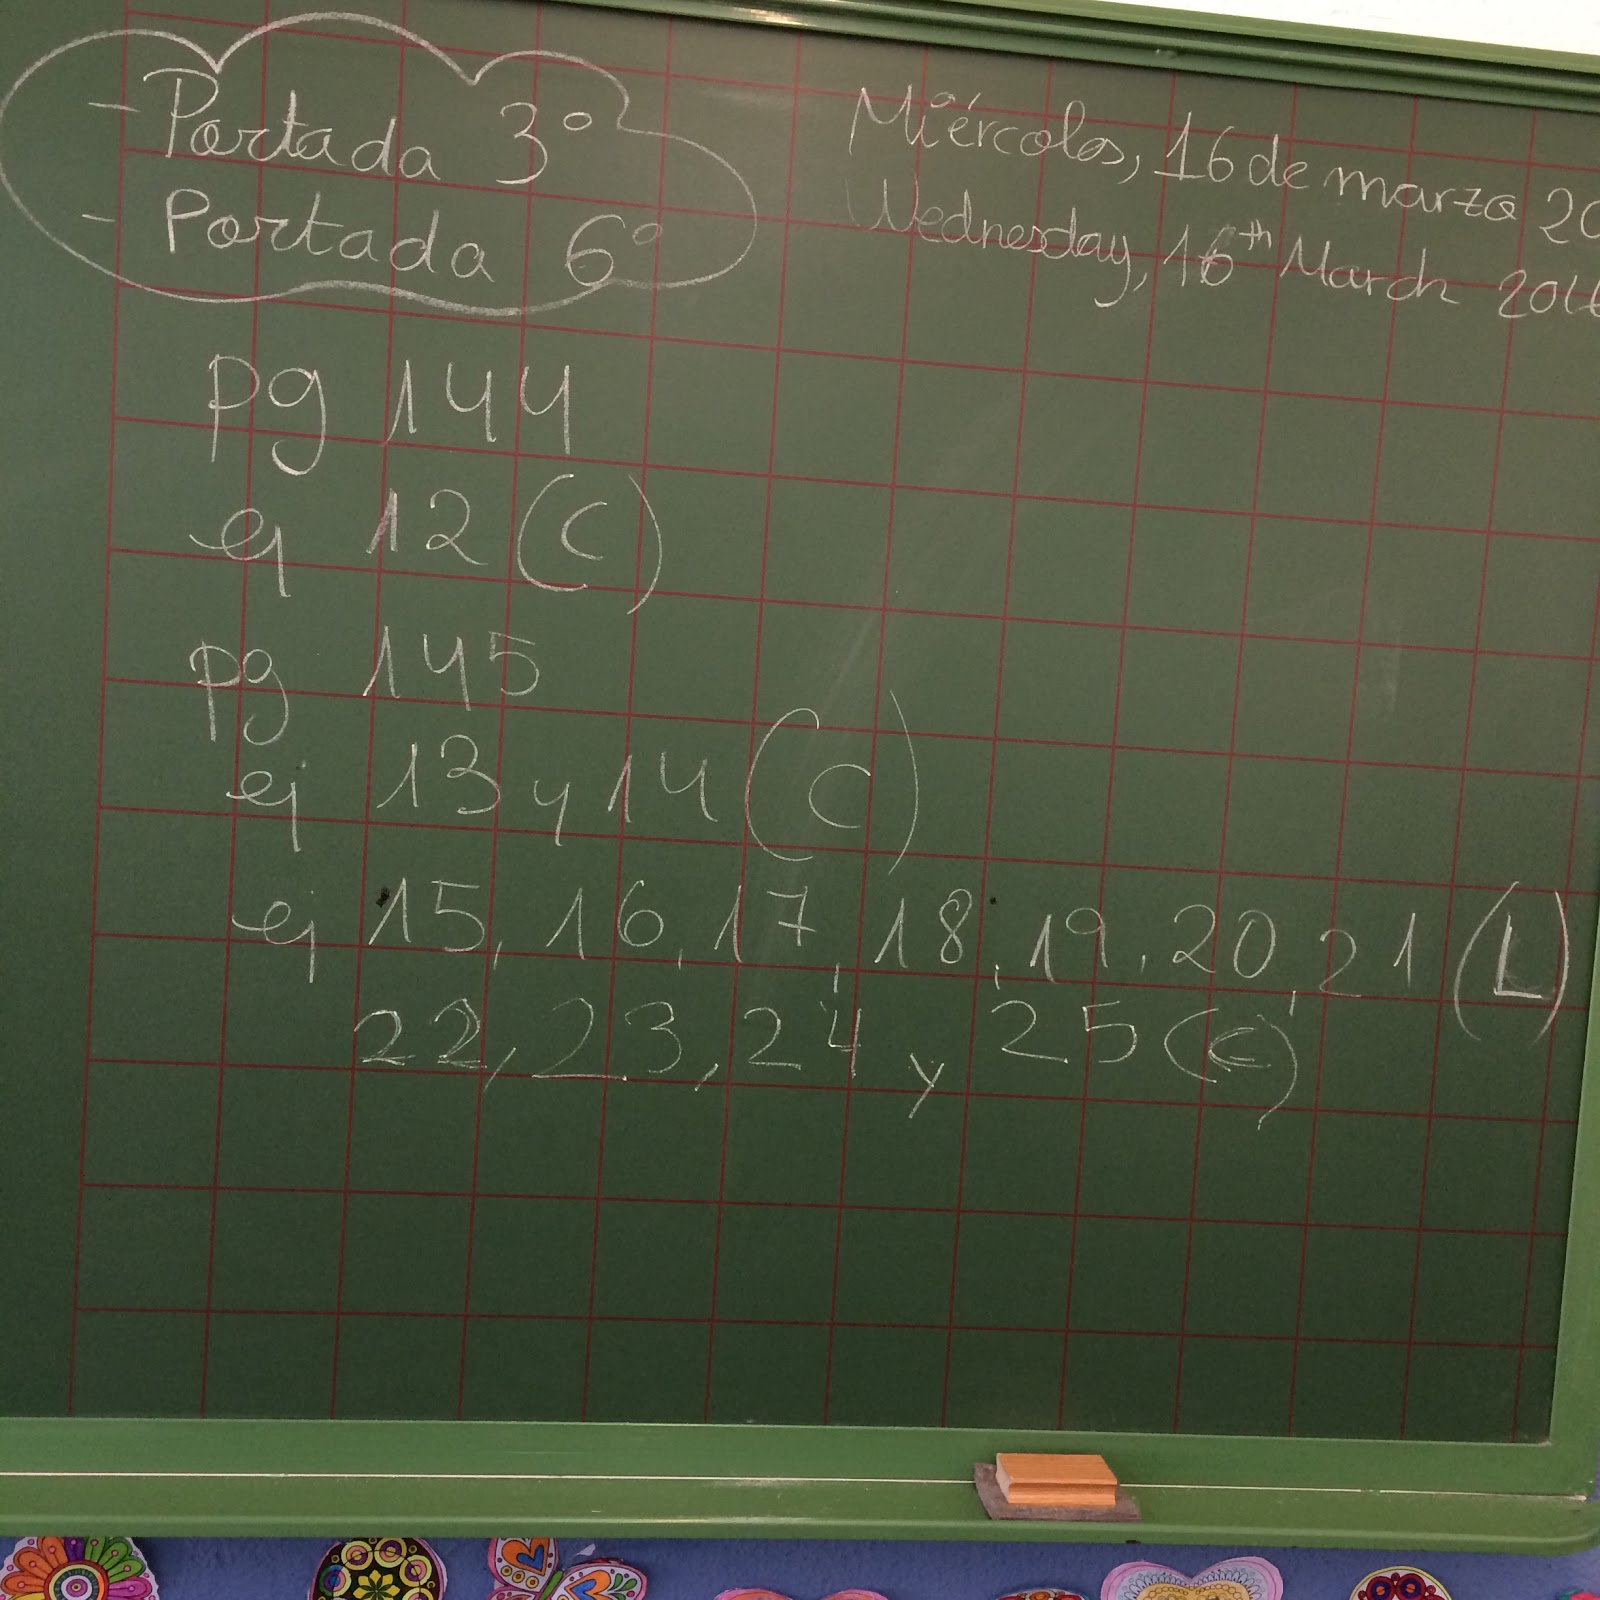 - Portada 3º
- Portada 6º
Miércoles, 16 de marzo 20
Wednesday, 16th March 2016
pg 144
ej 12 (C)
pg 145
ej 13 y 14 (C)
ej 15, 16, 17, 18, 19, 20, 21 (L)
22, 23, 24 y 25 (C)